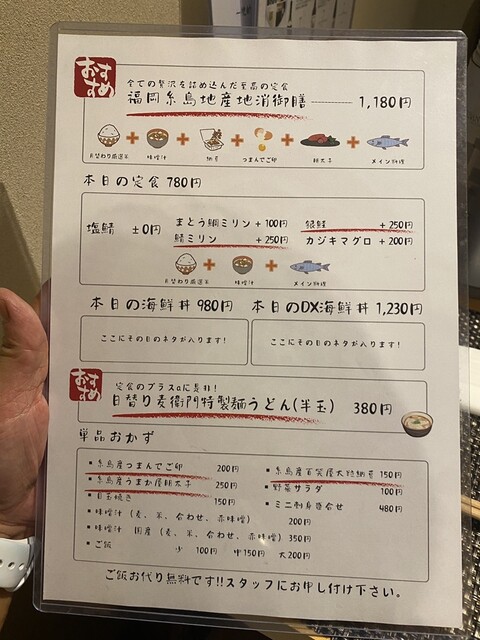 おすすめ
全ての贅沢を詰め込んだ至高の定食
福岡糸島地産地消御膳 1,180円
日替わり厳選米 味噌汁 納豆 つまんでご卵 明太子 メイン料理
本日の定食 780円
塩鯖 ±0円
まとう鯛ミリン +100円
銀鮭 +250円
鯖ミリン +250円
カジキマグロ +200円
日替わり厳選米 味噌汁 メイン料理
本日の海鮮丼 980円
本日のDX海鮮丼 1,230円
ここにその日のネタが入ります!
ここにその日のネタが入ります!
おすすめ
定食のプラスαに是非!
日替り麦衛門特製麺うどん(半玉) 380円
単品おかず
▪糸島産つまんでご卵 200円
▪糸島産百笑屋大粒納豆 150円
▪糸島産うまか屋明太子 250円
▪野菜サラダ 100円
▪目玉焼き 150円
▪ミニ刺身盛合せ 480円
▪味噌汁(麦、米、合わせ、赤味噌) 200円
▪味噌汁 国産(麦、米、合わせ、赤味噌) 350円
▪ご飯 小 100円 中150円 大200円
ご飯お代り無料です!!スタッフにお申し付け下さい。